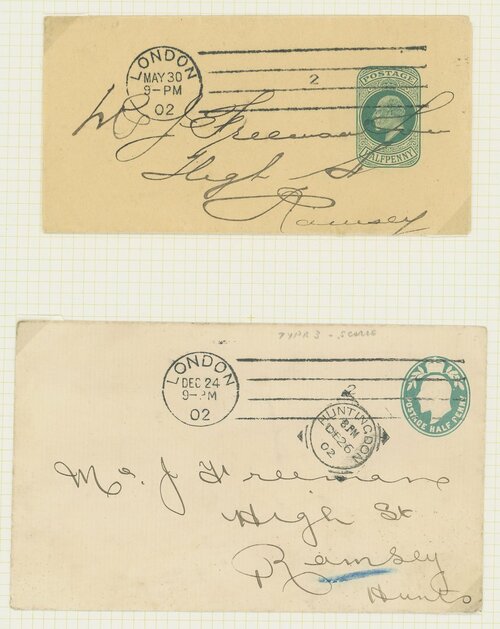 LONDON
MAY 30
9-PM
02
2
POSTAGE
HALFPENNY
J Freeman
High St
Ramsey
TYPE 3 - SCARCE
LONDON
DEC 24
9-PM
02
POSTAGE HALF PENNY
HUNTINGDON
8 PM
DE 26
02
Mr J Freeman
High St
Ramsey
Hunts